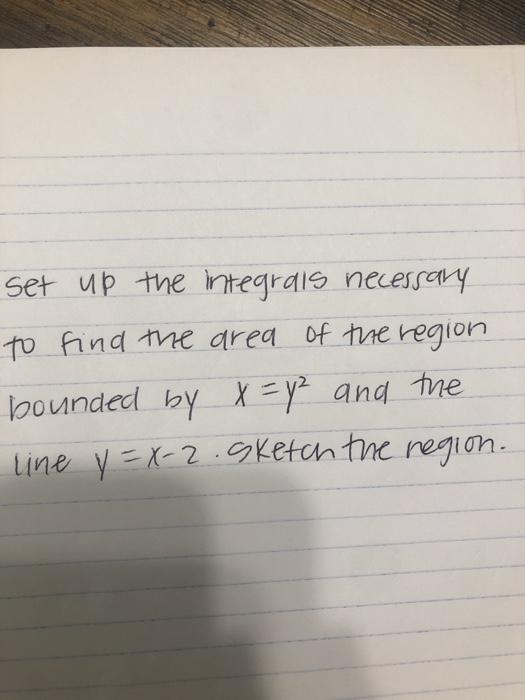 Set up the integrals necessary
to find the area of the region
bounded by x = y² and the
line y = x - 2. Sketch the region.